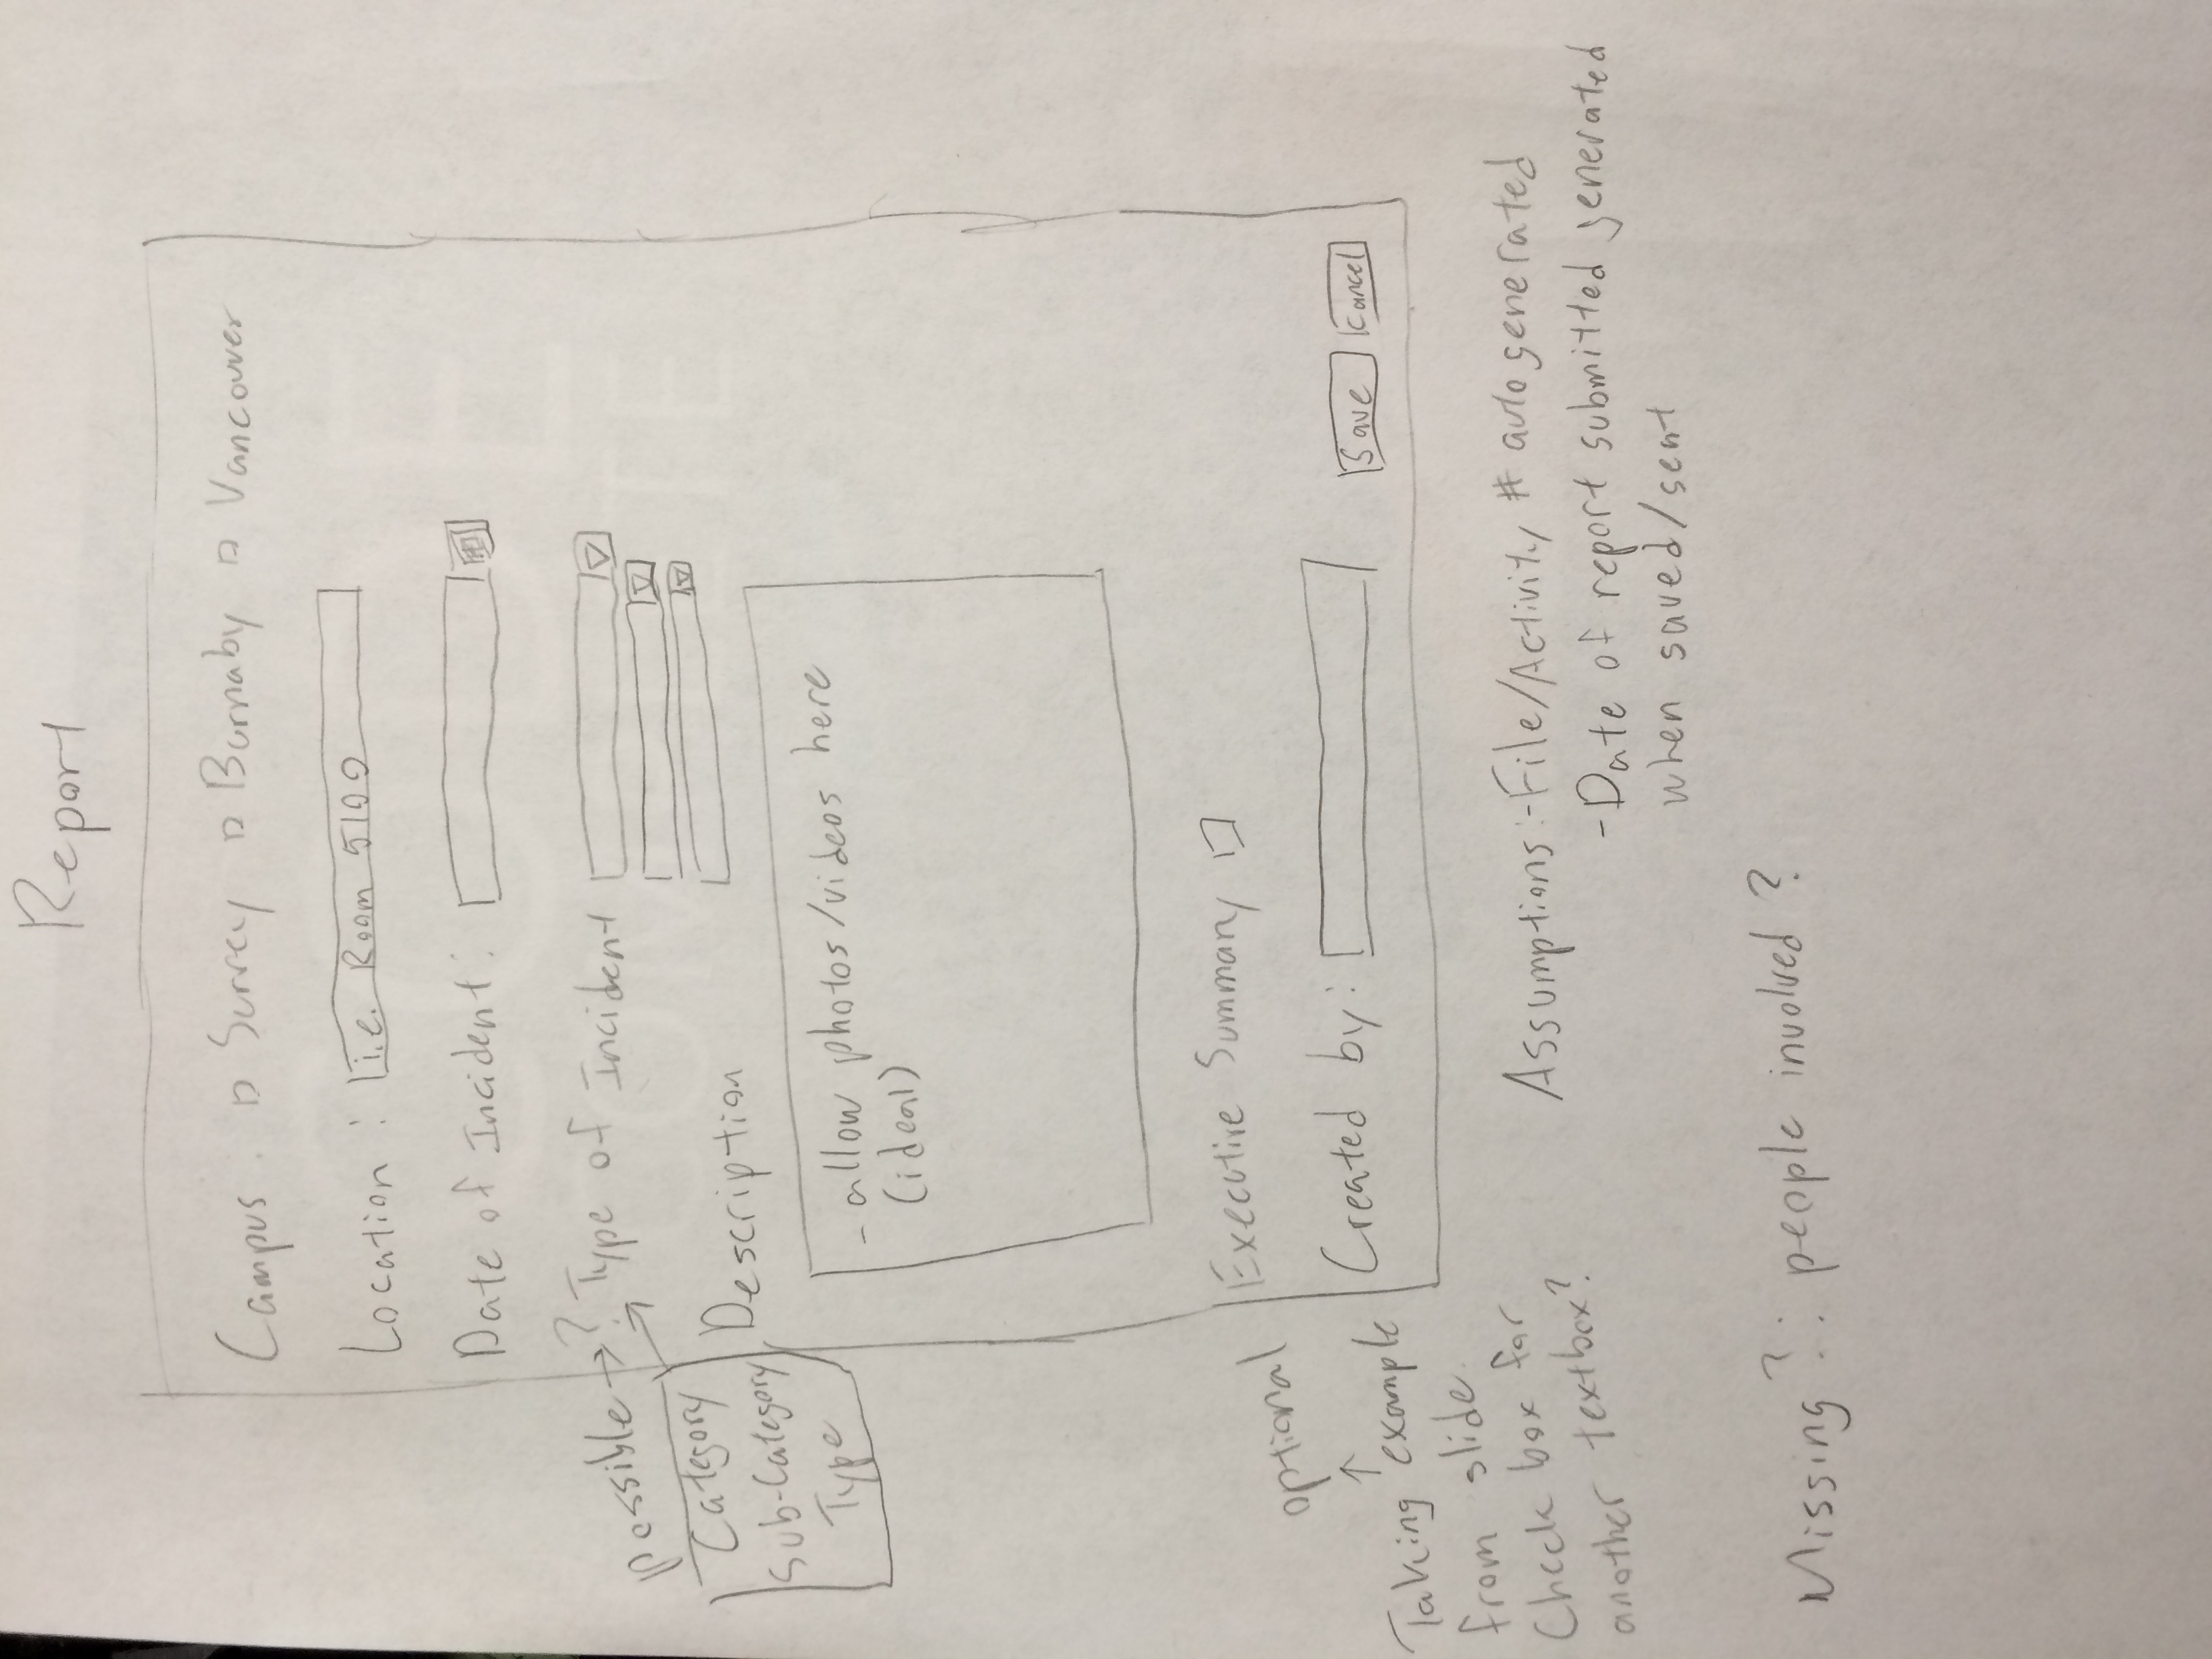 Report
Campus : Surrey Burnaby Vancouver
Location : i.e. Room 5100
Date of Incident:
possible → ? Type of Incident
Category
Sub-Category
Type
Description
- allow photos/videos here
(ideal)
Executive Summary
optional
Created by: Save Cancel
Taking example
from slide.
Check box for
another textbox?
Assumptions:-File/Activity # auto generated
-Date of report submitted generated
when saved/sent
Missing?: people involved?